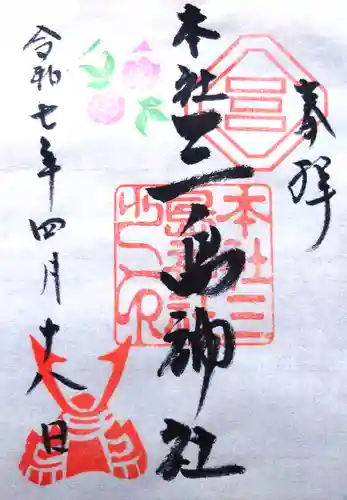 奉拝
本社三島神社
令和七年四月十八日
本社三島神社之印